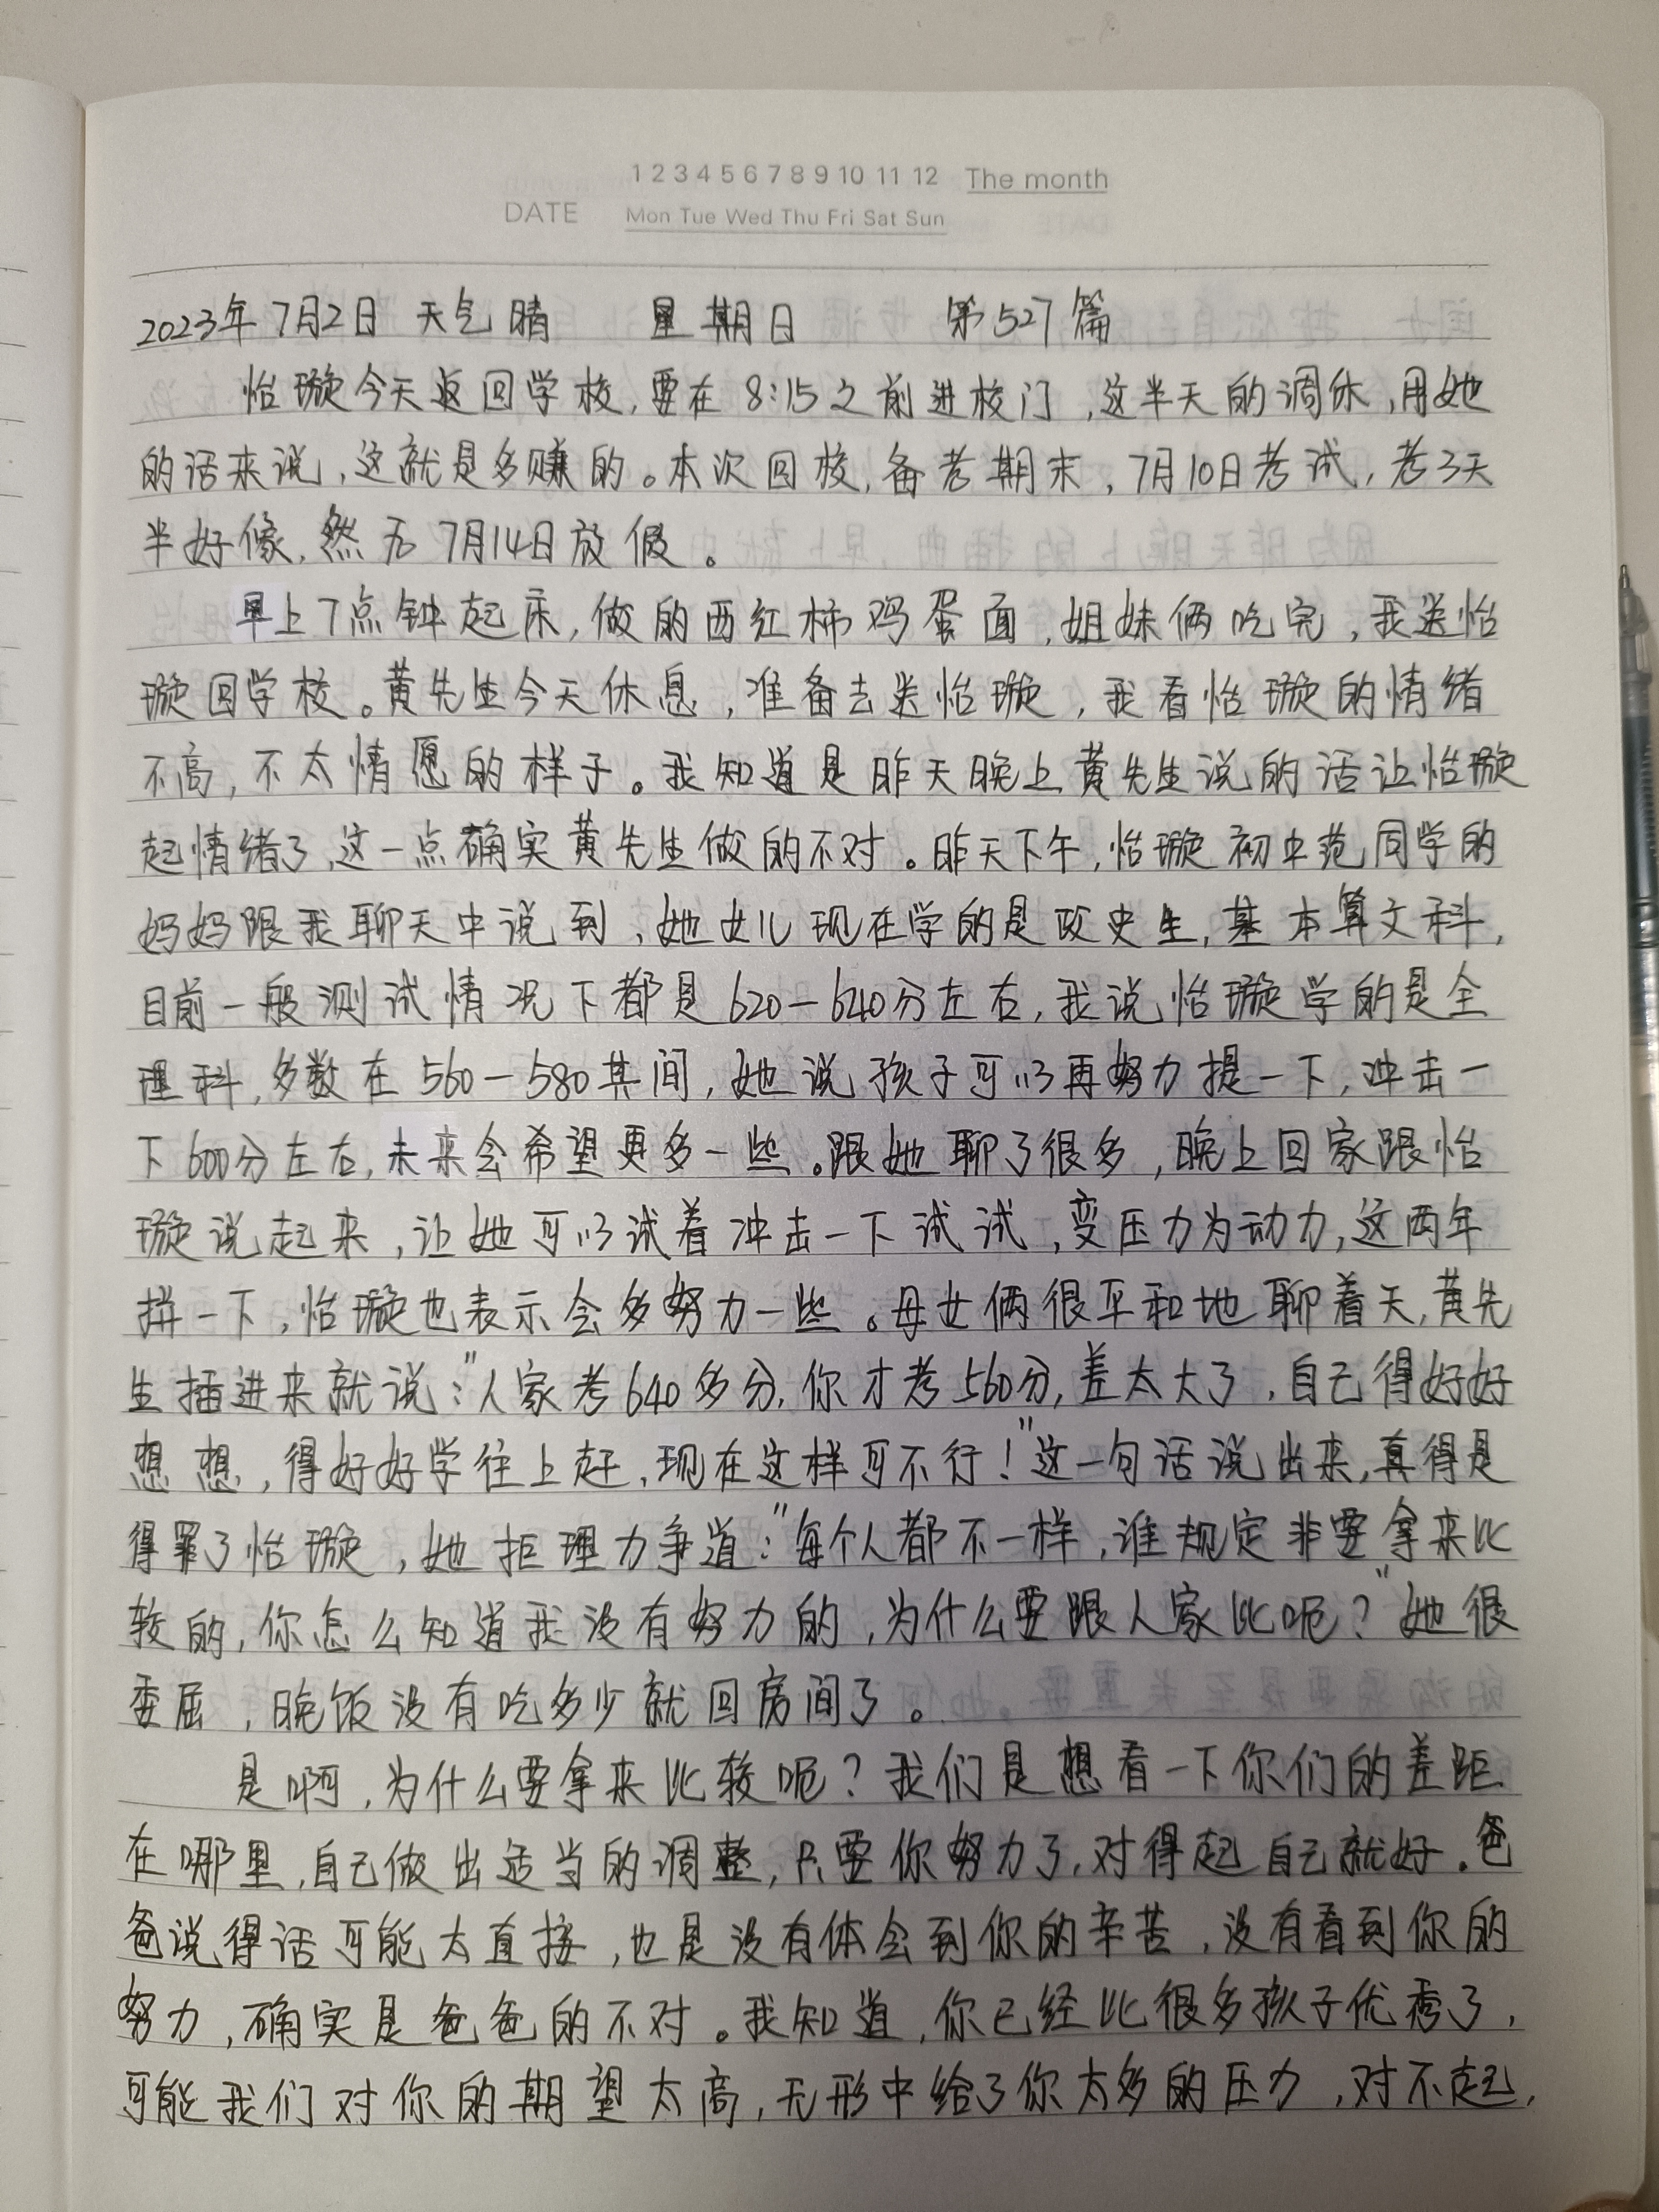 1 2 3 4 5 6 7 8 9 10 11 12 The month
DATE Mon Tue Wed Thu Fri Sat Sun
2023年7月2日 天气晴 星期日 第527篇
怡璇今天返回学校,要在8:15之前进校门,这半天的调休,用她
的话来说,这就是多赚的。本次回校,备考期末,7月10日考试,考3天
半好像,然后7月14日放假。
早上7点钟起床,做的西红柿鸡蛋面,姐妹俩吃完,我送怡
璇回学校。黄先生今天休息,准备去送怡璇,我看怡璇的情绪
不高,不太情愿的样子。我知道是昨天晚上黄先生说的话让怡璇
起情绪了,这一点确实黄先生做的不对。昨天下午,怡璇初中范同学的
妈妈跟我聊天中说到,她女儿现在学的是政史生,基本算文科,
目前一般测试情况下都是620—640分左右,我说怡璇学的是全
理科,多数在560—580其间,她说孩子可以再努力提一下,冲击一
下600分左右,未来会希望更多一些。跟她聊了很多,晚上回家跟怡
璇说起来,让她可以试着冲击一下试试,变压力为动力,这两年
拼一下,怡璇也表示会多努力一些。母女俩很平和地聊着天,黄先
生插进来就说:"人家考640多分,你才考560分,差太大了,自己得好好
想想,得好好学往上赶,现在这样可不行!"这一句话说出来,真得是
得罪了怡璇,她拒理力争道:"每个人都不一样,谁规定非要拿来比
较的,你怎么知道我没有努力的,为什么要跟人家比呢?"她很
委屈,晚饭没有吃多少就回房间了。
是啊,为什么要拿来比较呢?我们是想看一下你们的差距
在哪里,自己做出适当的调整,只要你努力了,对得起自己就好。爸
爸说得话可能太直接,也是没有体会到你的辛苦,没有看到你的
努力,确实是爸爸的不对。我知道,你已经比很多孩子优秀了,
可能我们对你的期望太高,无形中给了你太多的压力,对不起,